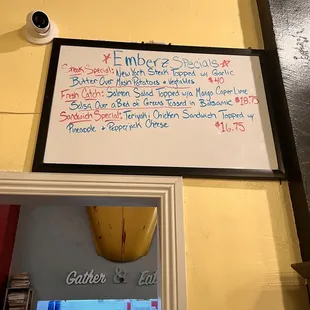 * Emberz Specials *
Steak Special: New York Steak Topped w/ Garlic
Butter Over Mash Potatoes + Vegetables $40
Fresh Catch: Salmon Salad Topped w/a Mango Caper Lime
Salsa Over a Bed of Greens Tossed in Balsamic $18.75
Sandwich Special: Teriyaki Chicken Sandwich Topped w/
Pineapple + Pepperjack Cheese $16.75
Gather & Eat